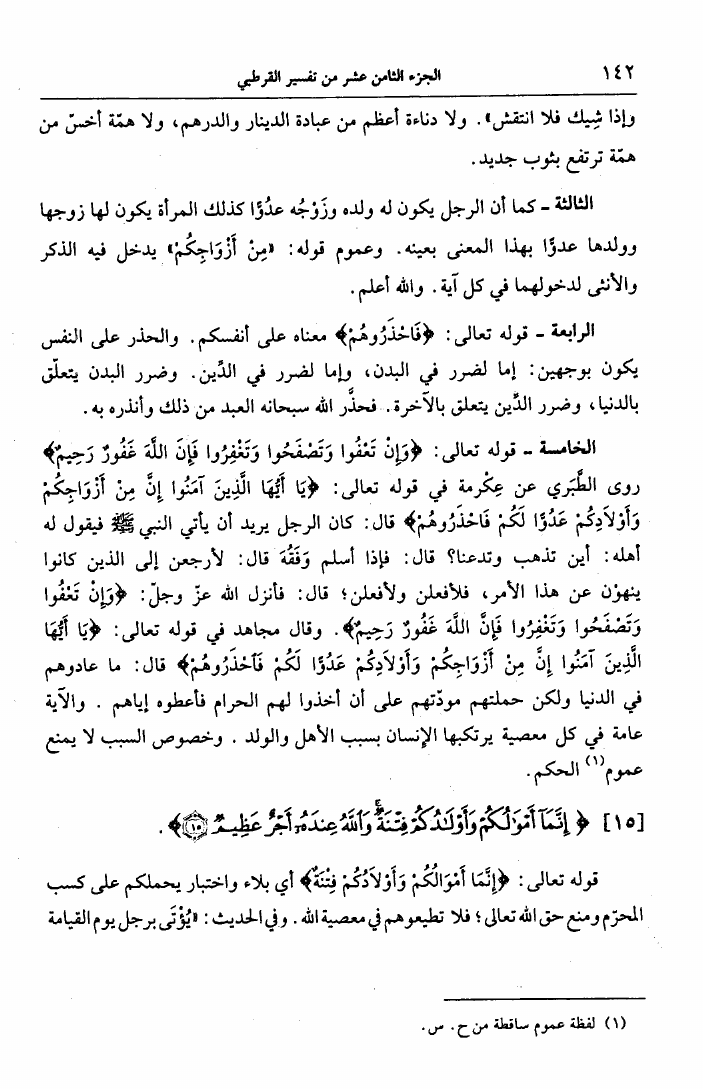 ١٤٢
الجزء الثامن عشر من تفسير القرطبي
وإذا شِيك فلا انتقش». ولا دناءة أعظم من عبادة الدينار والدرهم، ولا همّة أخسّ من
همّة ترتفع بثوب جديد.
الثالثة - كما أن الرجل يكون له ولده وزَوْجُه عدُوًّا كذلك المرأة يكون لها زوجها
وولدها عدوًّا بهذا المعنى بعينه. وعموم قوله: «مِنْ أَزْوَاجِكُمْ» يدخل فيه الذكر
والأنثى لدخولهما في كل آية. والله أعلم.
الرابعة - قوله تعالى: ﴿فَاحْذَرُوهُمْ﴾ معناه على أنفسكم. والحذر على النفس
يكون بوجهين: إما لضرر في البدن، وإما لضرر في الدِّين. وضرر البدن يتعلّق
بالدنيا، وضرر الدِّين يتعلق بالآخرة. فحذَّر الله سبحانه العبد من ذلك وأنذره به.
الخامسة - قوله تعالى: ﴿وَإِنْ تَعْفُوا وَتَصْفَحُوا وَتَغْفِرُوا فَإِنَ اللَّهَ غَفُورٌ رَحِيمٌ﴾
روى الطَّبَري عن عِكْرمة في قوله تعالى: ﴿يَا أَيُّهَا الَّذِينَ آمَنُوا إِنَّ مِنْ أَزْوَاجِكُمْ
وَأَوْلَادِكُمْ عَدُوًّا لَكُمْ فَاحْذَرُوهُمْ﴾ قال: كان الرجل يريد أن يأتي النبي ﷺ فيقول له
أهله: أين تذهب وتدعنا؟ قال: فإذا أسلم وَفَقُهَ قال: لأرجعن إلى الذين كانوا
ينهوْن عن هذا الأمر، فلأفعلن ولأفعلن؛ قال: فأنزل الله عزّ وجلّ: ﴿وَإِنْ تَعْفُوا
وَتَصْفَحُوا وَتَغْفِرُوا فَإِنَّ اللَّهَ غَفُورٌ رَحِيمٌ﴾. وقال مجاهد في قوله تعالى: ﴿يَا أَيُّهَا
الَّذِينَ آمَنُوا إِنَّ مِنْ أَزْوَاجِكُمْ وَأَوْلَادِكُمْ عَدُوًّا لَكُمْ فَاحْذَرُوهُمْ﴾ قال: ما عادوهم
في الدنيا ولكن حملتهم مودّتهم على أن أخذوا لهم الحرام فأعطوه إياهم . والآية
عامة في كل معصية يرتكبها الإنسان بسبب الأهل والولد . وخصوص السبب لا يمنع
عموم(١) الحكم.
[١٥] ﴿ إِنَّمَآ أَمْوَٰلُكُمْ وَأَوْلَٰدُكُمْ فِتْنَةٌۚ وَٱللَّهُ عِندَهُۥٓ أَجْرٌ عَظِيمٌ ۝١٥﴾.
قوله تعالى: ﴿إِنَّمَا أَمْوَالُكُمْ وَأَوْلَادُكُمْ فِتْنَةٌ﴾ أي بلاء واختبار يحملكم على كسب
المحرّم ومنع حق الله تعالى؛ فلا تطيعوهم في معصية الله. وفي الحديث: «يُؤْتَى برجل يوم القيامة
(١) لفظة عموم ساقطة من ح. س.